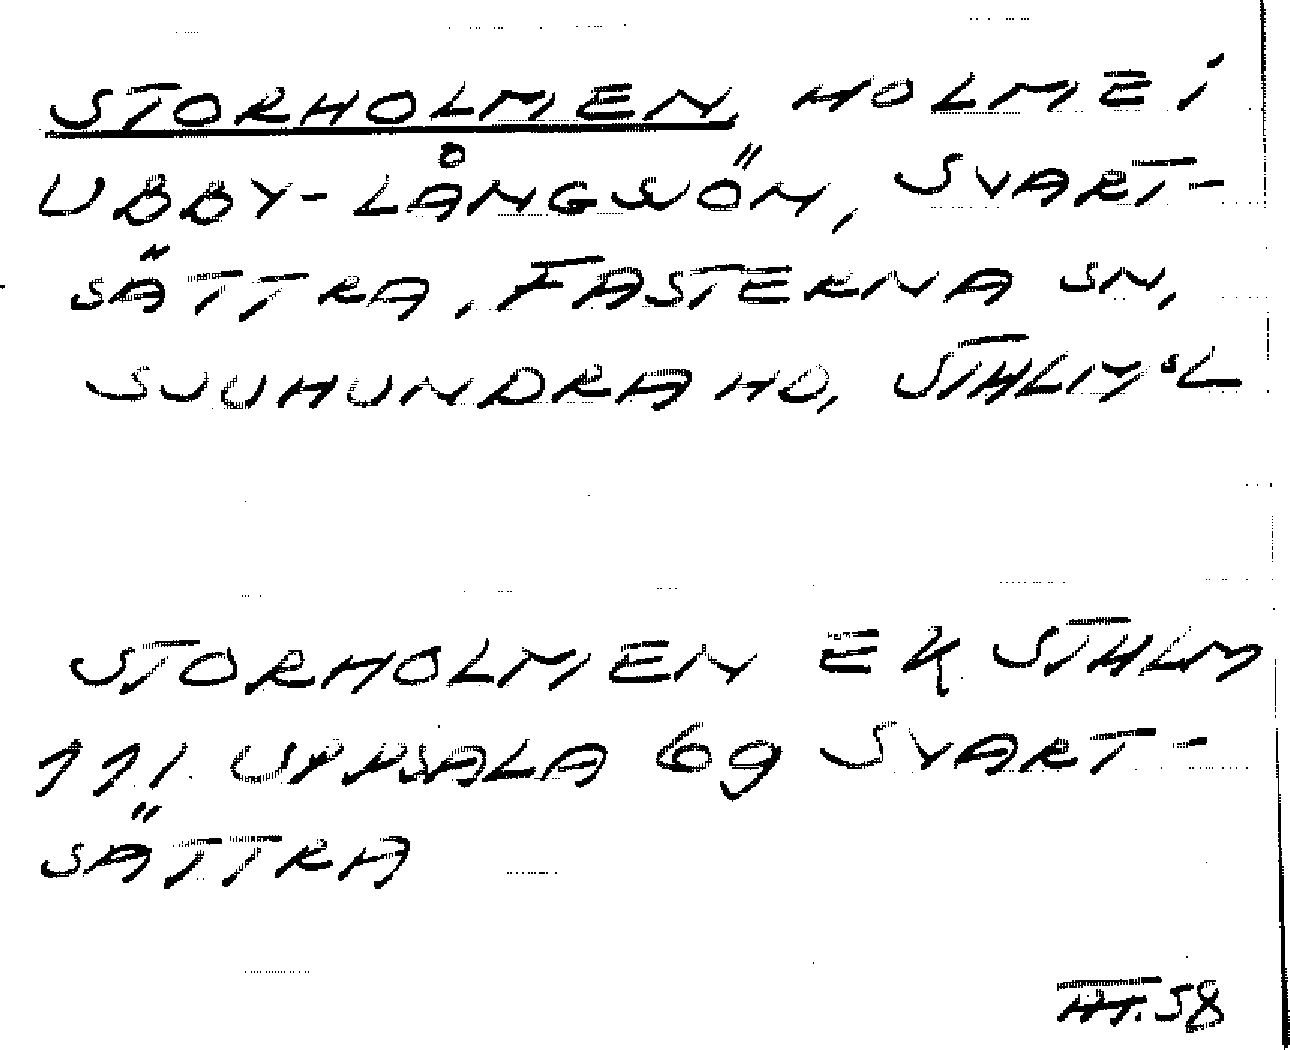 STORHOLMEN, HOLME i
UBBY-LÅNGSJÖN, SVART-
SÄTTRA, FASTERNA SN,
SJUHUNDRA HD, STHLM'S L
STORHOLMEN EK STHLM
111. UPPSALA 69 SVART-
SÄTTRA
HT. 58